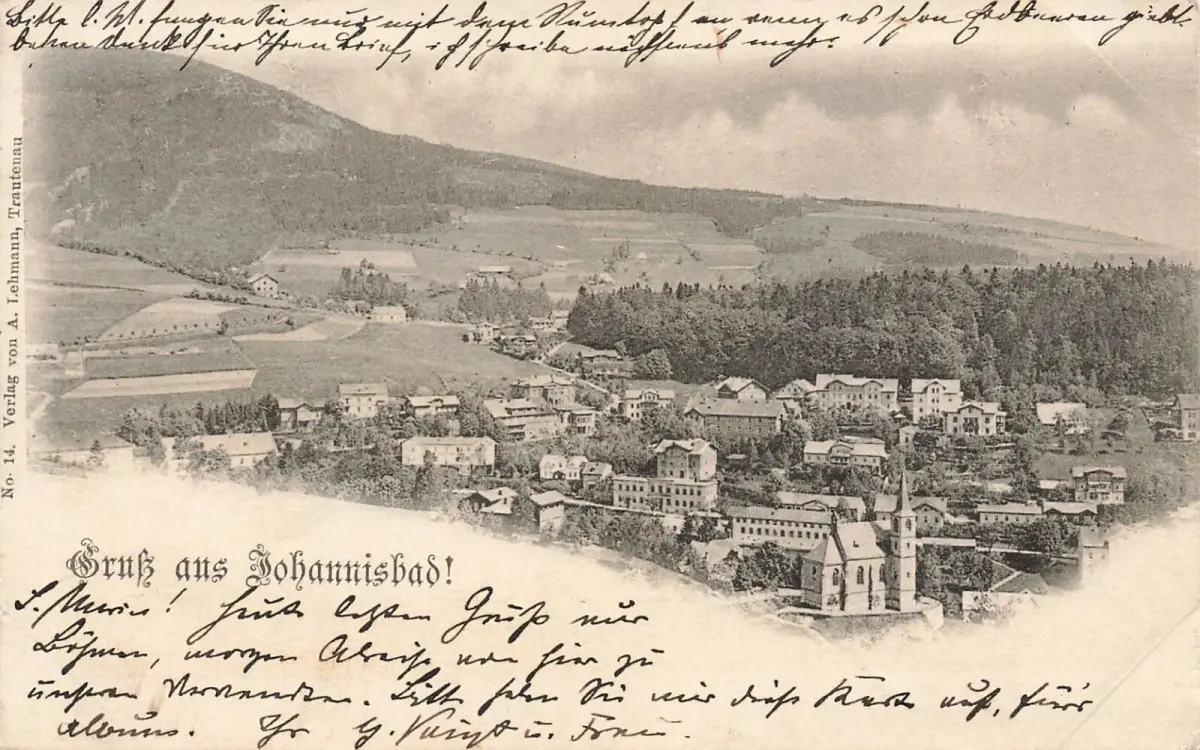 Bitte l. M. fangen Sie nur mit dem Rumtopf an wenn es schon Erdbeeren giebt.
besten Dank für Ihren Brief, ich schreibe nächstens mehr.
No. 14. Verlag von A. Lehmann, Trautenau
Gruß aus Johannisbad!
L. Marie! Heute letzten Gruß aus
Böhmen, morgen Abreise von hier zu
unseren Verwandten. Bitte heben Sie mir diese Karte auf, für's
Album. Ihr G. Voigt u. Frau.